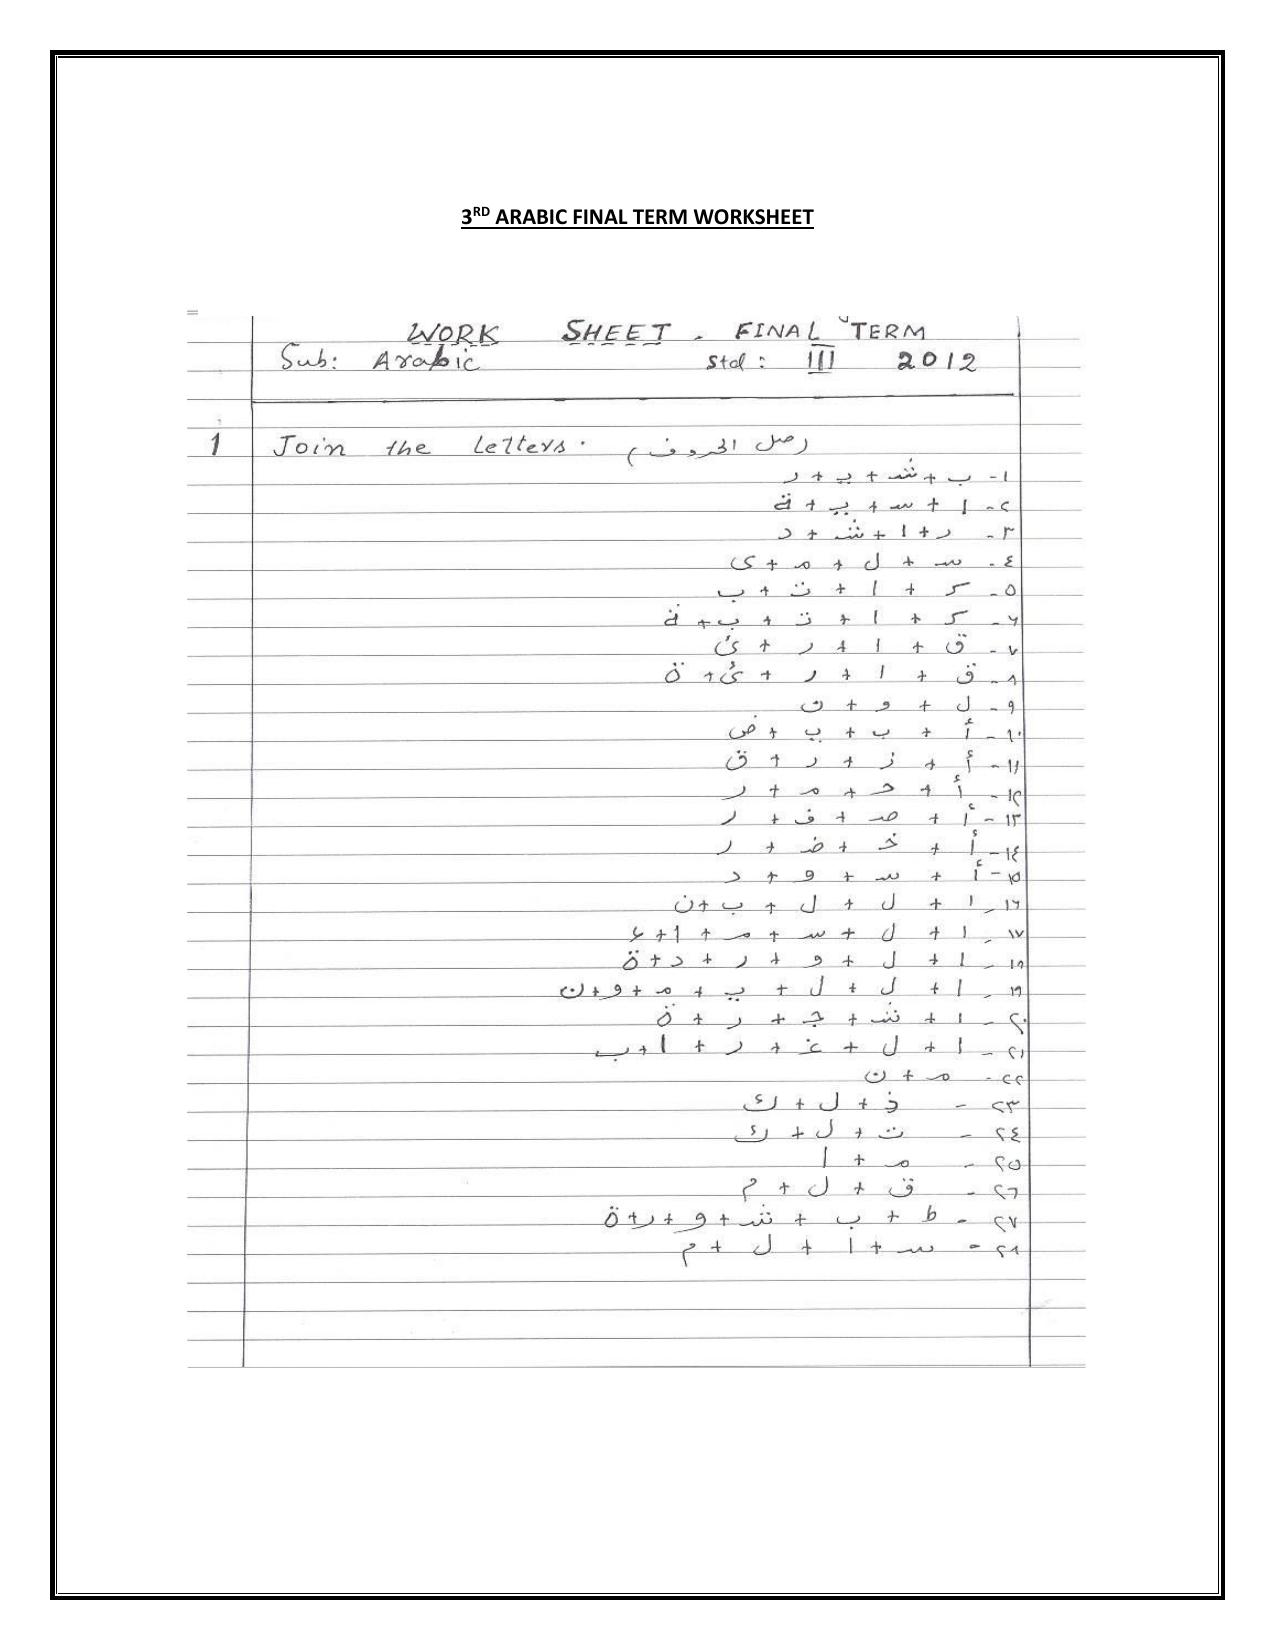 3RD ARABIC FINAL TERM WORKSHEET
WORK SHEET - FINAL TERM
Sub: Arabic Std: III 2012
1 Join the Letters. (صل الحروف)
١- ب + شـ + يـ + ر
٢- ا + سـ + يـ + ة
٣- ر + ا + شـ + د
٤- سـ + ل + مـ + ى
٥- كـ + ا + تـ + ب
٦- كـ + ا + تـ + بـ + ة
٧- ق + ا + ر + ئ
٨- ق + ا + ر + ئ + ة
٩- ل + و + ن
١٠- أ + ب + يـ + ض
١١- أ + ز + ر + ق
١٢- أ + حـ + مـ + ر
١٣- أ + صـ + فـ + ر
١٤- أ + خـ + ضـ + ر
١٥- أ + سـ + و + د
١٦- ا + ل + ل + بـ + ن
١٧- ا + ل + سـ + مـ + ا + ء
١٨- ا + ل + و + ر + د + ة
١٩- ا + ل + ل + يـ + مـ + و + ن
٢٠- ا + شـ + جـ + ر + ة
٢١- ا + ل + غـ + ر + ا + ب
٢٢- مـ + ن
٢٣- ذ + ل + ك
٢٤- ت + ل + ك
٢٥- مـ + ا
٢٦- ق + ل + م
٢٧- ط + ب + شـ + و + ر + ة
٢٨- سـ + ا + ل + م